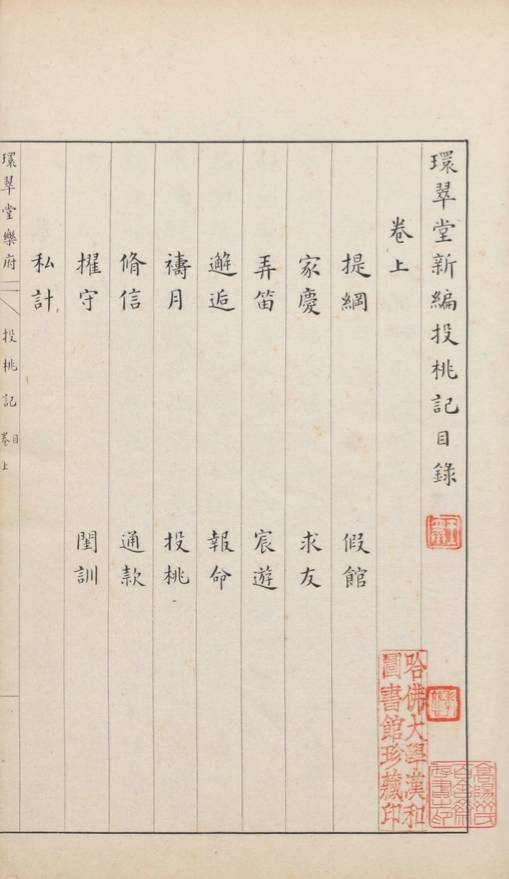 環翠堂新編投桃記目錄
卷上
提綱 假館
家慶 求友
弄笛 宸遊
邂逅 報命
禱月 投桃
脩信 通款
擢守 閨訓
私計
環翠堂樂府 投桃記 目 卷上
哈佛大學漢和
圖書館珍藏印